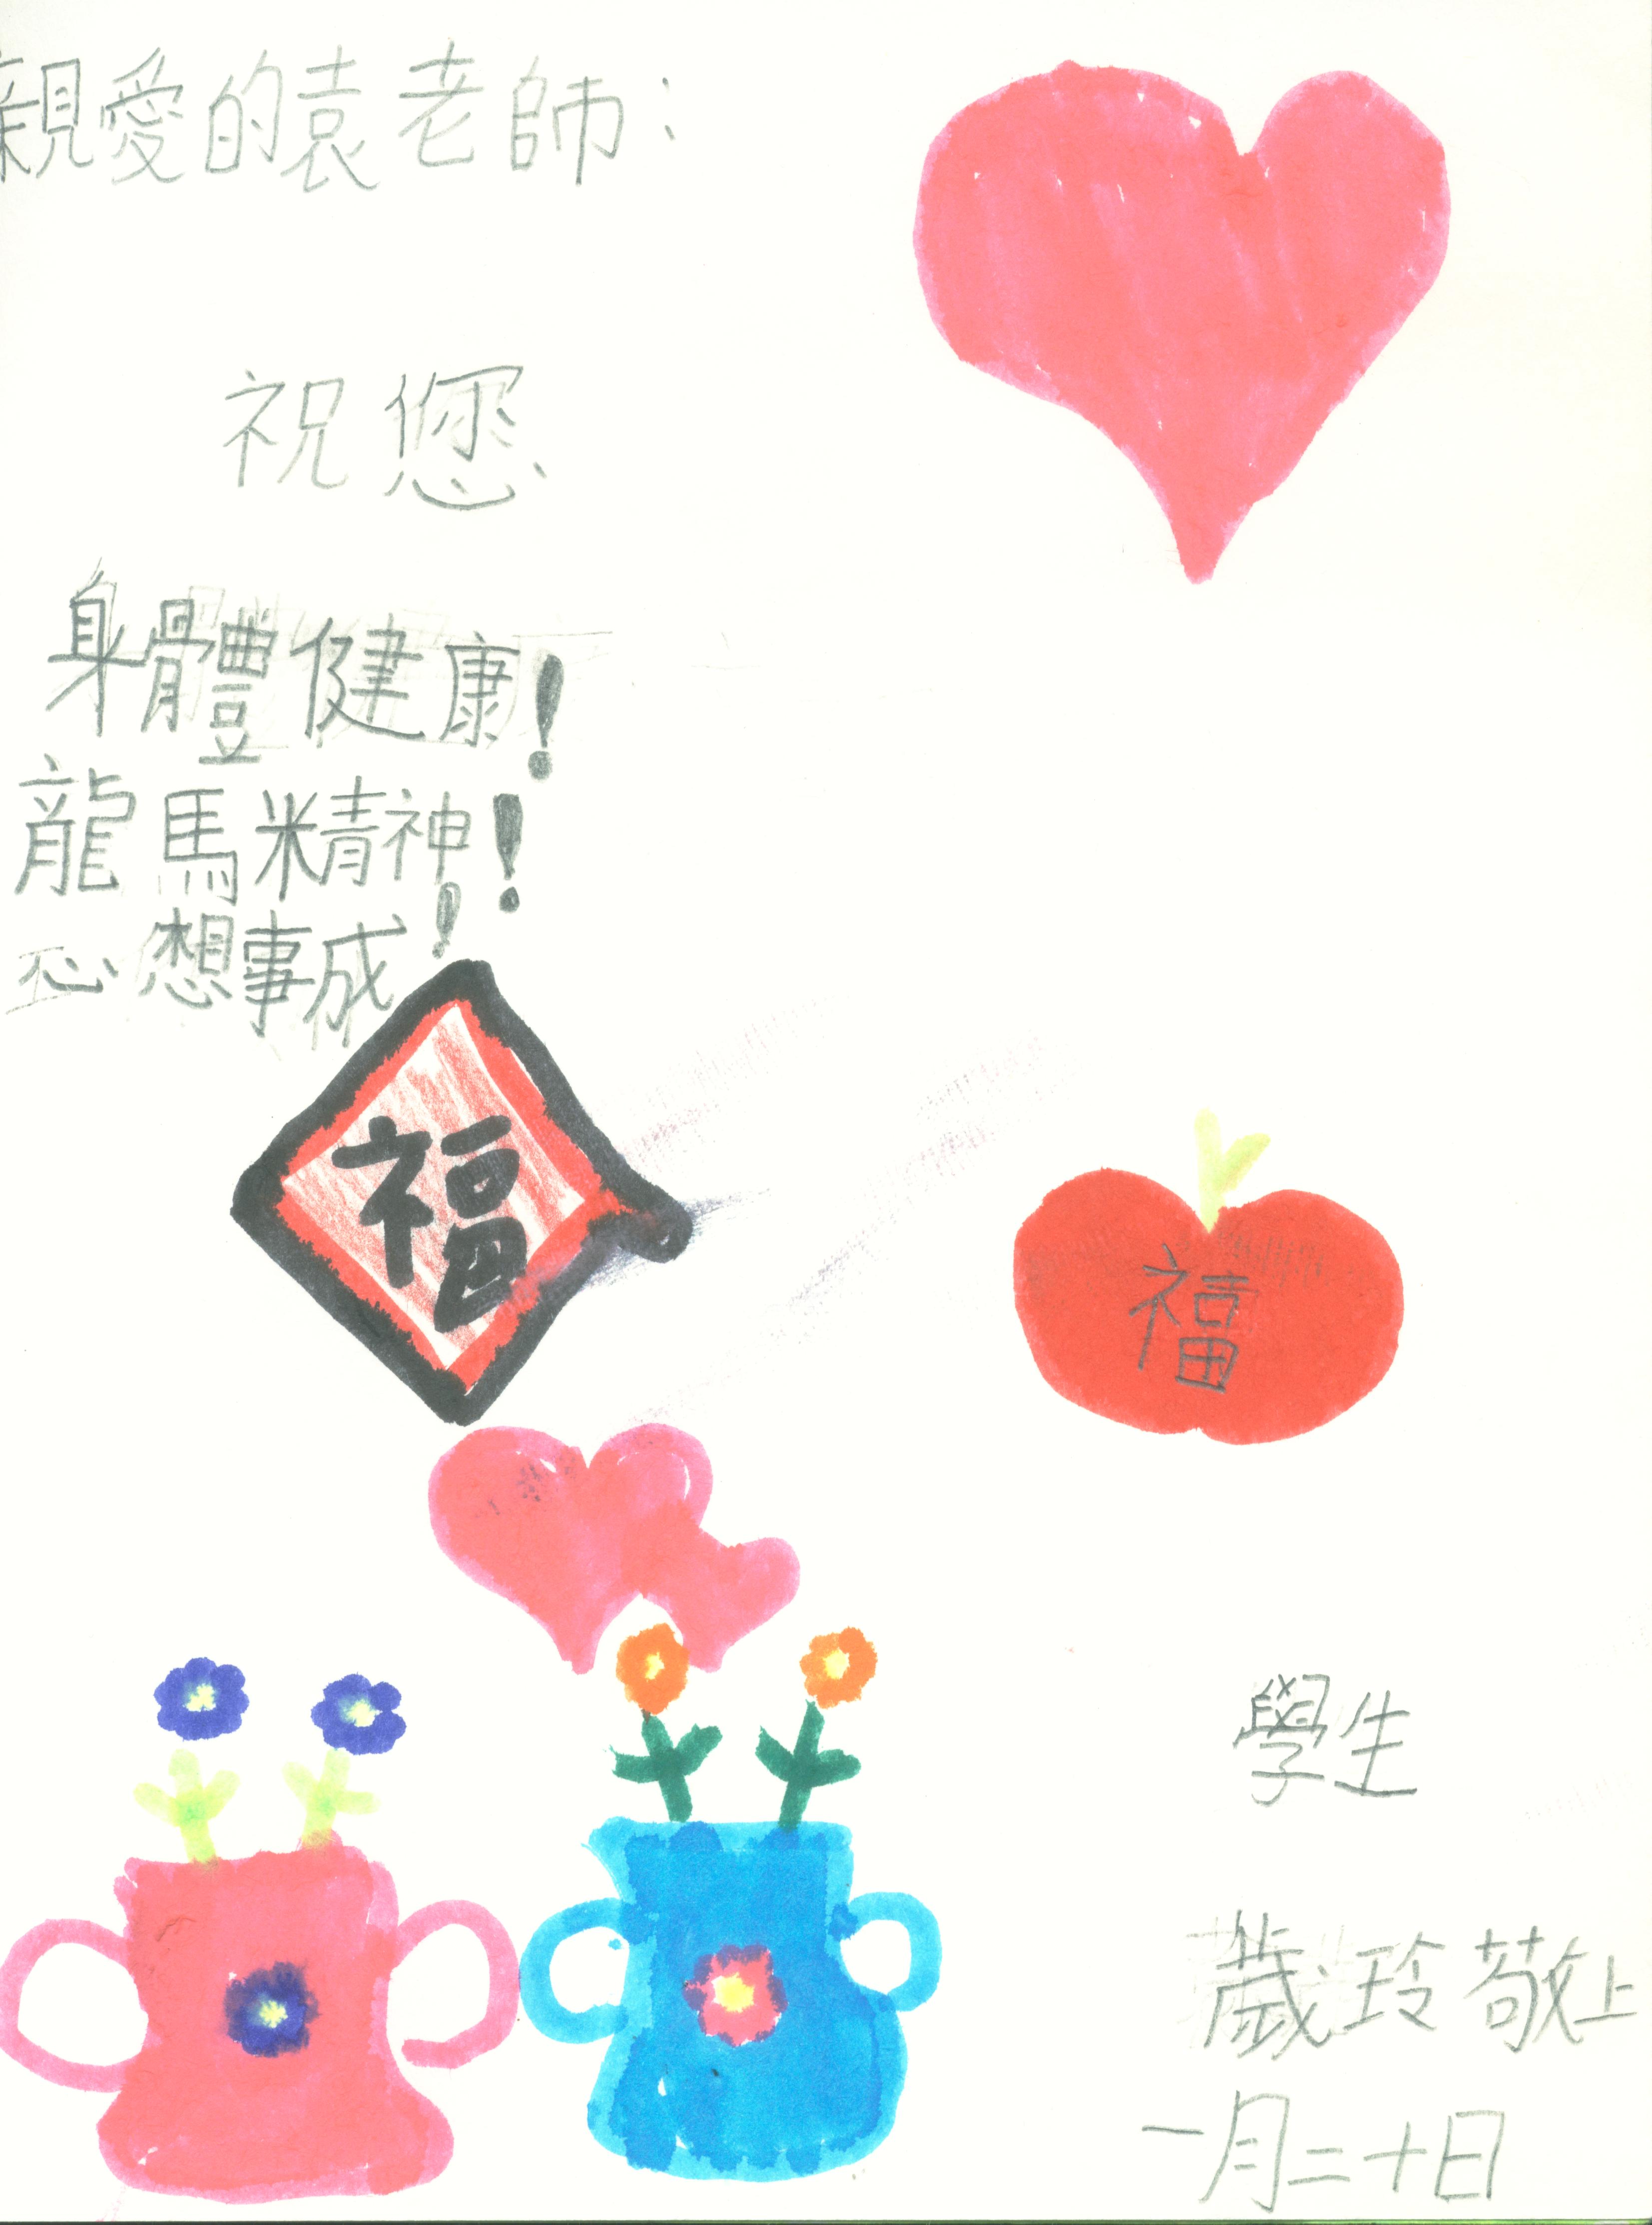 親愛的袁老師:
祝您
身體健康!
龍馬精神!
心想事成!
福
福
學生
葳玲敬上
一月二十日